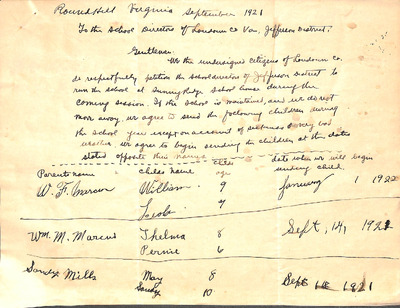 Round Hill Virginia September 1921
To the School Directors of Loudoun Co Va., Jefferson District.
Gentlemen.
We the undersigned citizens of Loudoun Co.
do respectfully petition the school directors of Jefferson District to
run the school at Sunny Ridge School house during the
coming session. If the school is maintained, and we do not
move away, we agree to send the following children during
the school year except on account of sickness or very bad
weather. We agree to begin sending the children at the dates
stated opposite their names.
Parents name Childs name Childs age date when we will begin sending child.
W. F. William 9 January 1 1922
7
Wm. M. Marcus Thelma 8 Sept, 14, 1921
6
Sandy Mills May 8 Sept 1921
Sandy 10